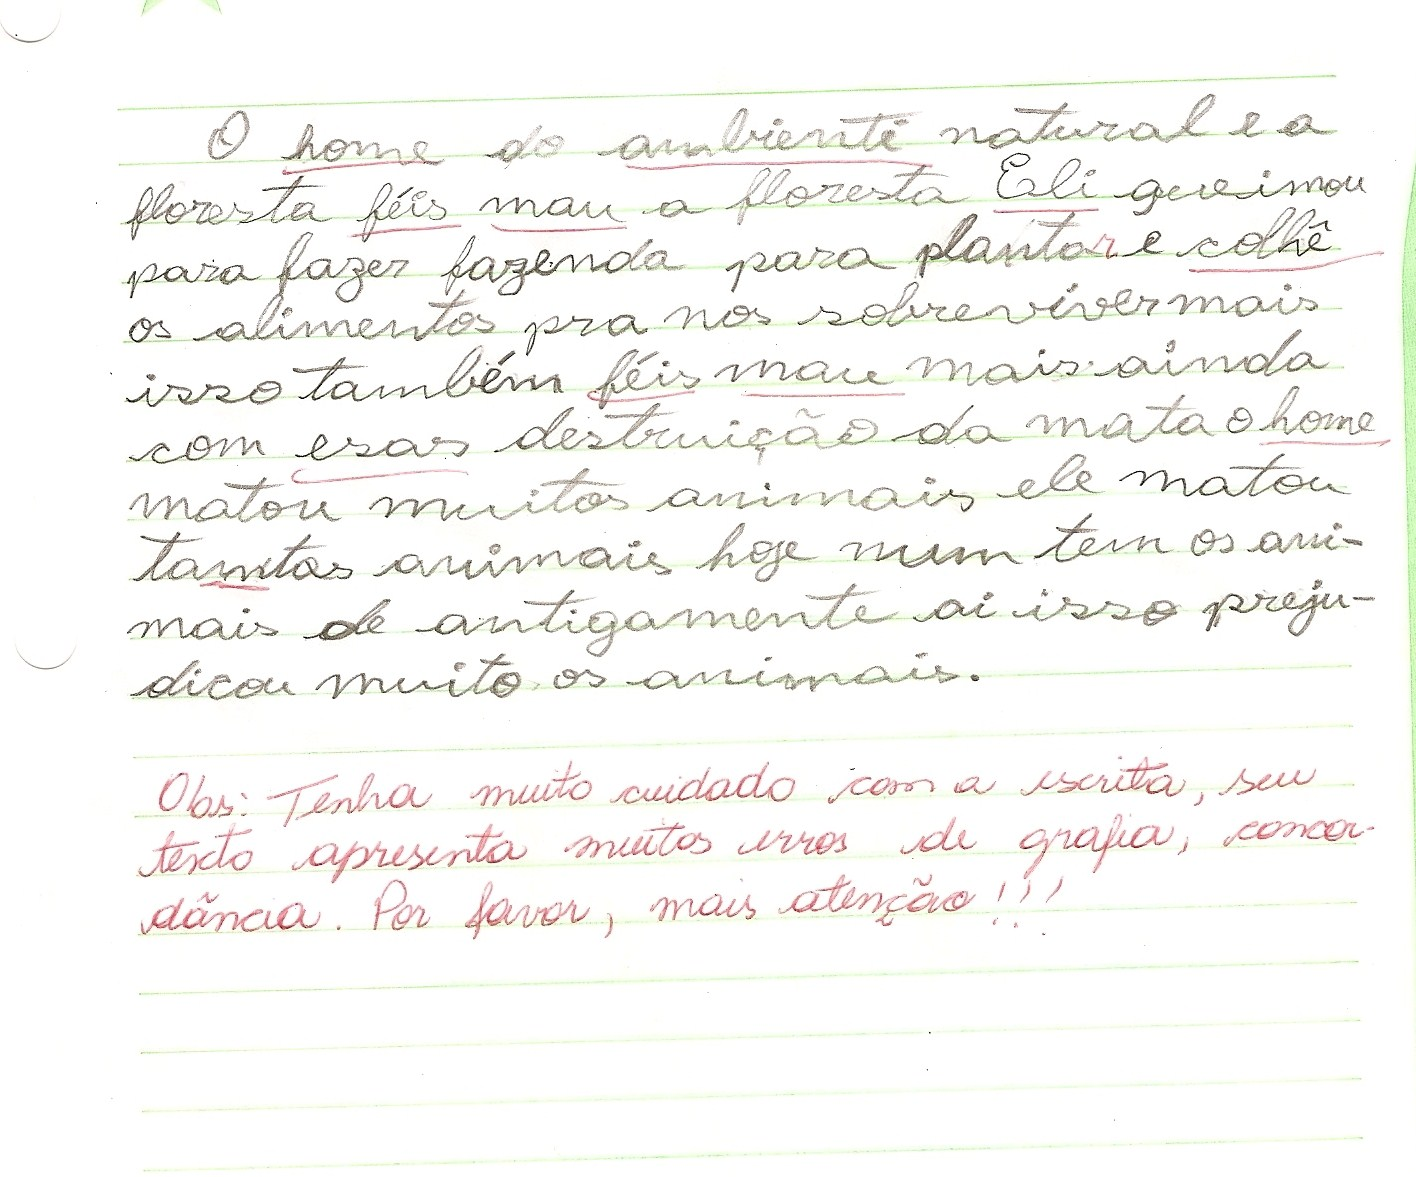 O home do ambienti natural e a
floresta féis mau a floresta Eli queimou
para fazer fazenda para plantar e colhê
os alimentos pra nos sobreviver mais
isso também féis mau mais ainda
com esas destruição da mata o home
matou muitos animais ele matou
tamtas animais hoje num tem os ani-
mais de antigamente ai isso preju-
dicou muito os animais.
Obs: Tenha muito cuidado com a escrita, seu
texto apresenta muitos erros de grafia, concor-
dância. Por favor, mais atenção!!!